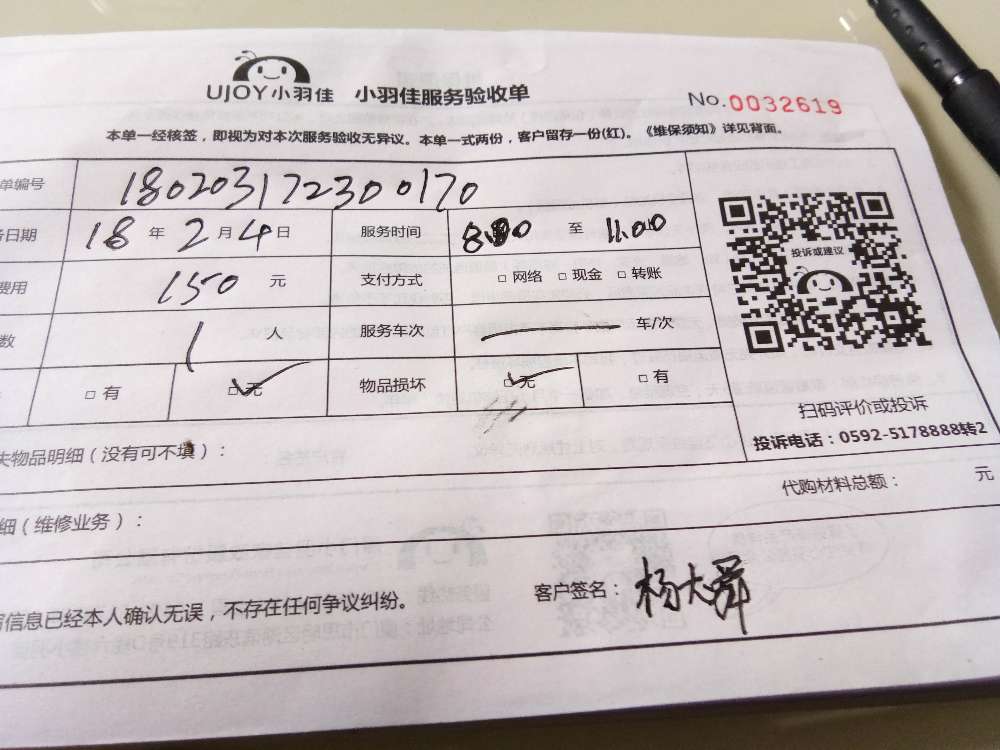 UJOY小羽佳 小羽佳服务验收单
No.0032619
本单一经核签，即视为对本次服务验收无异议。本单一式两份，客户留存一份(红)。《维保须知》详见背面。
单编号 180203172300170
务日期 18 年 2 月 4 日 服务时间 8:00 至 11:00
费用 150 元 支付方式 □ 网络 □ 现金 □ 转账
数 1 人 服务车次 — 车/次
□ 有 □无 物品损坏 □无 □ 有
投诉或建议
扫码评价或投诉
投诉电话：0592-5178888转2
失物品明细（没有可不填）：
代购材料总额： 元
细（维修业务）：
写信息已经本人确认无误，不存在任何争议纠纷。 客户签名：杨大舜